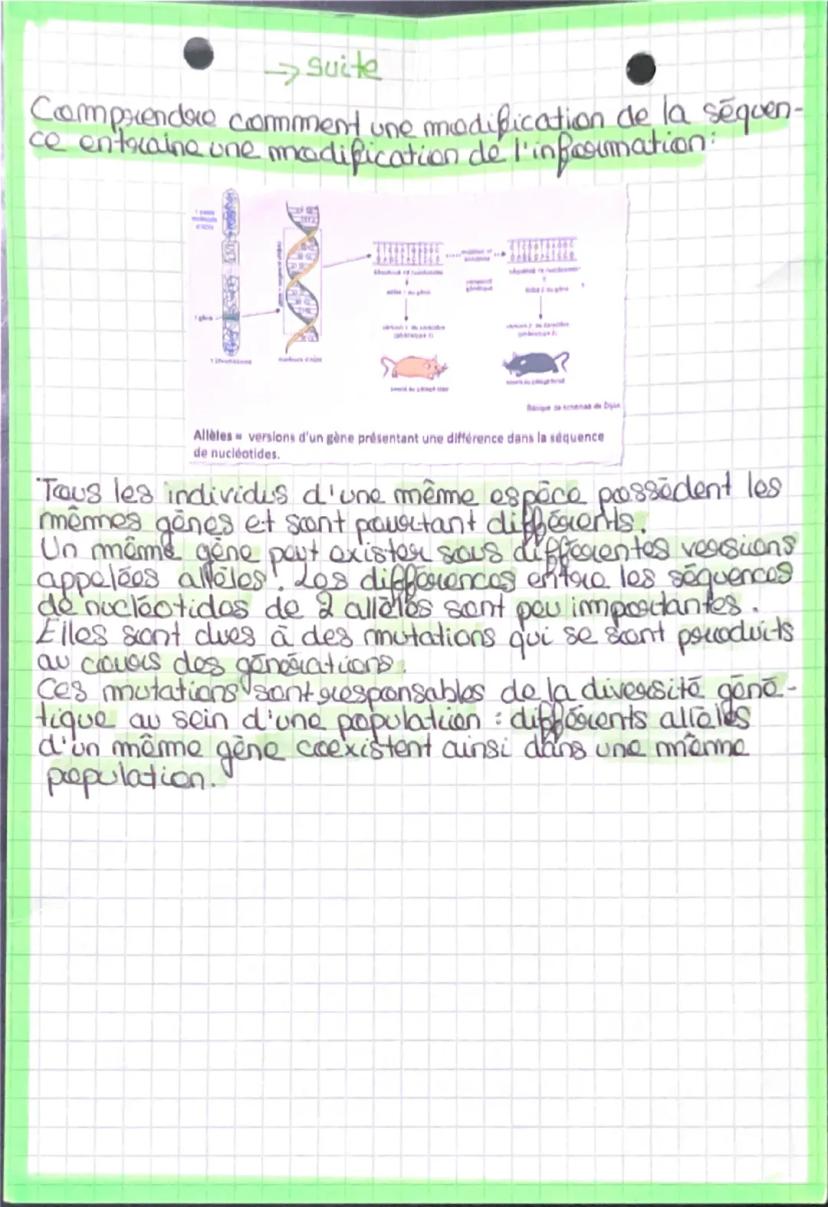 → suite
Comprendre comment une modification de la séquen-
ce entraine une modification de l'information:
1 gène
1 chromosome
séquence de nucléotides
allèle 1 du gène
séquence de nucléotides
allèle 2 du gène
Banque de schémas de Dijon
Allèles = versions d'un gène présentant une différence dans la séquence
de nucléotides.
Tous les individus d'une même espèce possèdent les
mêmes gènes et sont pourtant différents.
Un même gène peut exister sous différentes versions
appelées allèles. Les différences entre les séquences
de nucléotides de 2 allèles sont peu importantes.
Elles sont dues à des mutations qui se sont produits
au cours des générations.
Ces mutations sont responsables de la diversité géné-
tique au sein d'une population : différents allèles
d'un même gène coexistent ainsi dans une même
population.